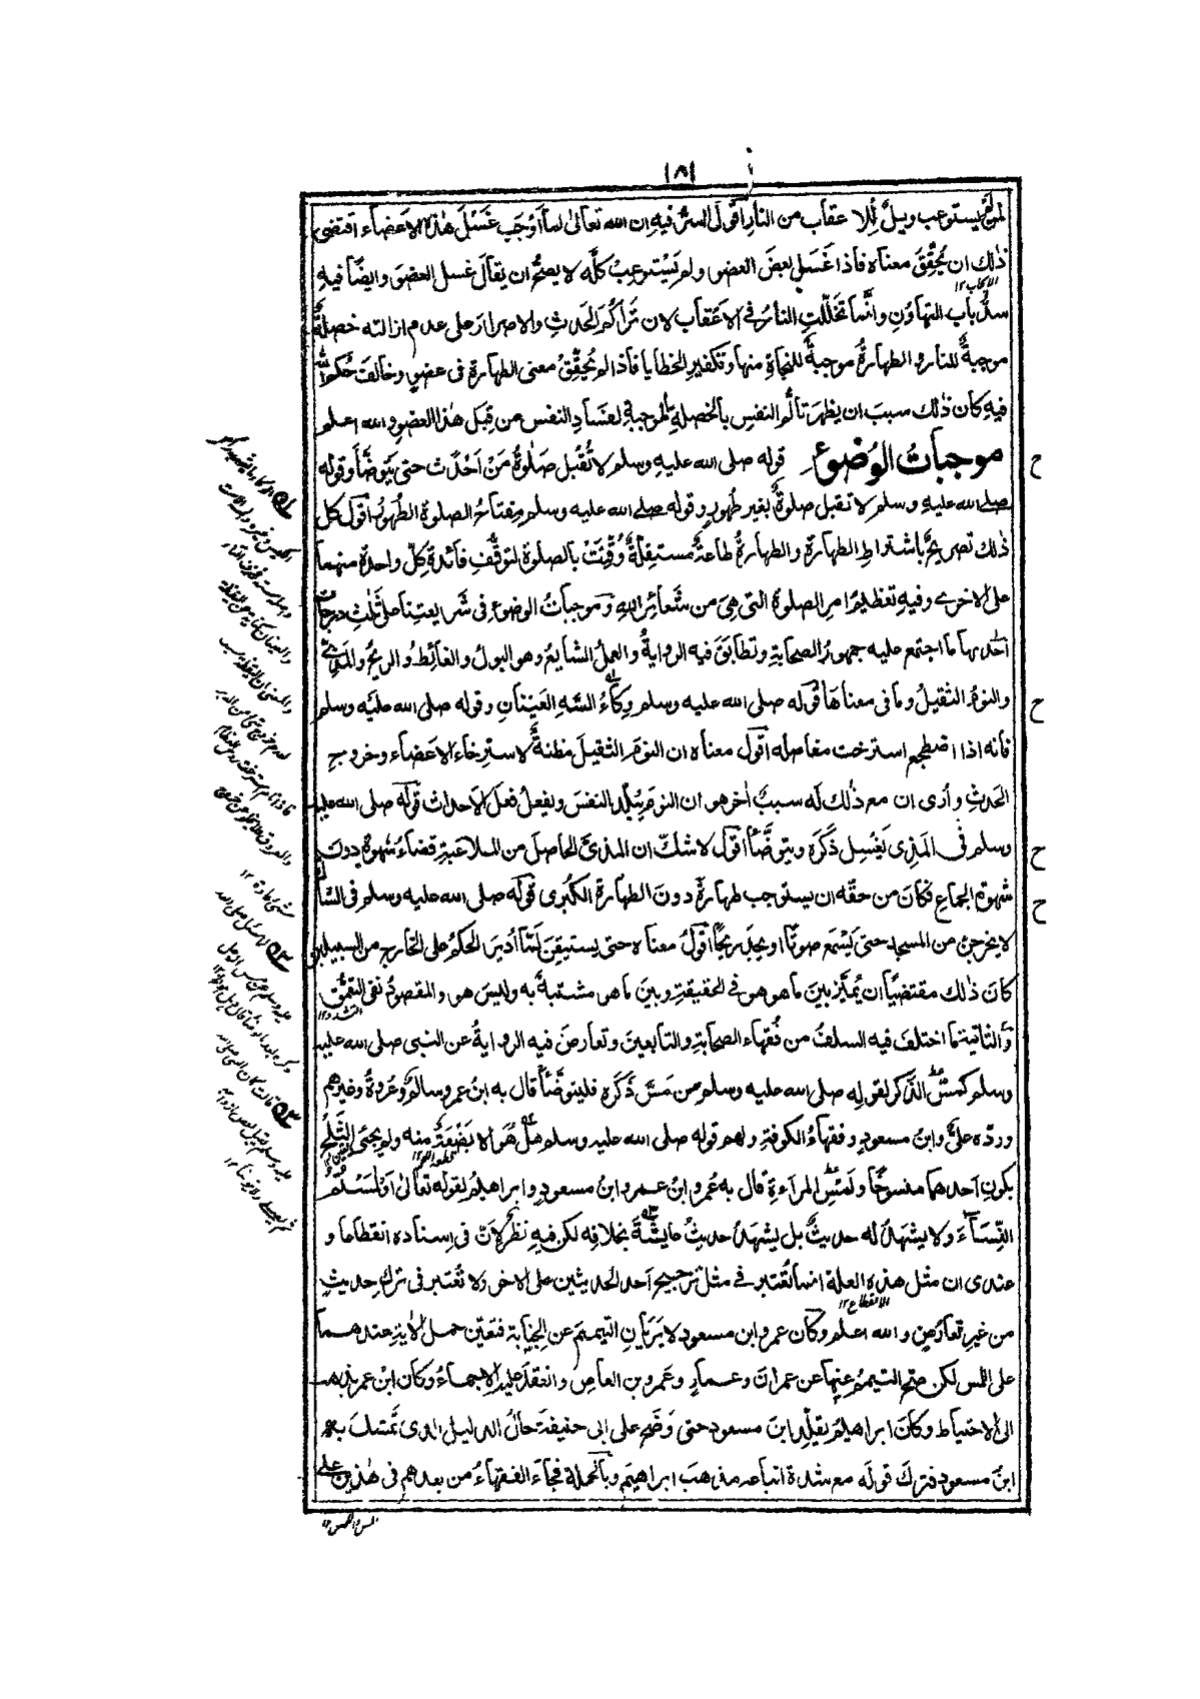 ١٨١
لم يستوعب ويلٌ للاعقاب من النار اقول السرّ فيه ان الله تعالىٰ لما اَوْجَبَ غَسْلَ هٰذه الاعضاء اقتضى
ذٰلك ان يُحقَّقَ معناه فاذا غَسَلَ بعضَ العضو ولم يَسْتوعِبْ كلَّه لا يصحّ ان يقالَ غسل العضوَ وايضًا فيهِ
سدُّ باب التهاوُنِ وانّما تخلّلتِ النارُ فى الاَعقاب لان تَراكُمَ الحَدثِ والاصرارَ على عدم ازالته خصلةٌ
موجبةٌ للنار والطهارةُ موجبةٌ للنجاةِ منها وتكفيرِ الخطايا فاذا لم يُحقِّقْ معنى الطهارة فى عضوٍ وخالفَ حُكمَ الله
فيه كان ذٰلك سببَ ان يظهرَ تألُّمُ النفسِ بالخصلةِ الموجبةِ لفسادِ النفس من قِبَل هٰذا العضو والله اعلم
موجباتُ الوُضوءِ قوله صلى الله عليهِ وسلم لا تُقْبل صَلٰوةُ مَنْ اَحْدَثَ حتى يَتوضَّأَ وقوله
صلى الله عليهِ وسلم لا تقبل صلوةٌ بغير طُهورٍ وقوله صلى الله عليه وسلم مِفتاحُ الصلوةِ الطُهورُ اقول كل
ذٰلك تصريحٌ باشتراطِ الطهارة والطهارةُ طاعةٌ مستقِلةٌ وُقِّتتْ بالصلوة لتوقُّفِ فائدةِ كلِّ واحدةٍ منهما
على الاخرى وفيهِ تعظيمُ امرِ الصلوةِ التى هِىَ من شَعائرِ اللهِ وموجباتُ الوضوءِ فى شَريعتِنا على ثَلٰثِ درجاتٍ
احدٰىها ما اجتمع عليه جمهورُ الصحابةِ وتطابَقَ فيه الروايةُ والعملُ الشايعُ وهو البولُ والغائطُ والريحُ والمَذْىُ
والنومُ الثقيلُ وما فى معناها قوله صلى الله عليه وسلم وِكاءُ السَّهِ العَيْنانِ وقوله صلى الله عليه وسلم
فانه اذا اضطجع استرخت مفاصله اقول معناه ان النومَ الثقيلَ مظنةٌ لاسترخاءِ الاَعضاء وخروجِ
الحَدثِ وأرى ان مع ذٰلك له سببٌ اٰخر هو ان النومَ يُبلِّد النفسَ ويفعلُ فعلَ الاحداث قوله صلى الله عليه
وسلم فى المَذِى يَغْسِل ذَكَرَه ويتوضَّأ اقول لا شكّ ان المذىَ الحاصلَ من الملاعبةِ قضاءُ شهوةٍ دونَ
شهوةِ الجماعِ فكانَ من حقّه ان يستوجب طهارةً دونَ الطهارة الكبرى قوله صلى الله عليه وسلم فى الشاك
لا يخرجنَّ من المسجد حتى يَسْمَع صوتًا او يجِدَ ريحًا اقول معناه حتى يستيقِنَ لمّا اُديرَ الحكمُ على الخارج من السبيلين
كانَ ذٰلك مقتضيًا ان يُميَّز بينَ ما هو هو فى الحقيقةِ وبينَ ما هو مشتبهٌ به وليس هو والمقصودُ نفى التعمُّقِ
والثانيةُ ما اختلفَ فيه السلفُ من فُقهاءِ الصحابةِ والتابعينَ وتعارضَ فيه الروايةُ عن النبى صلى الله عليه
وسلم كمَسِّ الذَّكرِ لقولِه صلى الله عليه وسلم من مَسَّ ذَكَرَه فليتوضّأ قال به ابنُ عمر وسالمٌ وعُروةُ وغيرهم
وردّه علىٌّ وابنُ مسعودٍ وفقهاءُ الكوفةِ ولهم قوله صلى الله عليه وسلم هل هُوَ الا بَضْعةٌ منه ولم يجئ الثَّلَجُ
بكونِ احدهما منسوخًا ولَمْسِ المراءةِ قال به عُمرُ وابنُ عمر وابنُ مسعود وابراهيمُ لقوله تعالىٰ اَوْ لٰمَسْتُمُ
النِّسَاءَ ولا يشهدُ له حديثٌ بل يشهدُ حديثُ عايشةَ بخلافِه لكن فيهِ نظرٌ لانّ فى اسناده انقطاعا و
عندى ان مثل هذه العلةِ انما تُعتبر فى مثل ترجيح اَحد الحديثين على الاخر ولا تُعتبر فى ترك حديثٍ
من غيرِ تعارُضٍ والله اعلم وكان عمر وابن مسعود لا يَرَيانِ التيمم عن الجنابة فتعَيَّن حملُ الاٰيةِ عندهما
على اللمس لكن صحّ التيممُ عنها عن عمرانَ وعمارٍ وعمرو بن العاصِ وانعقدَ عليه الاجماعُ وكان ابنُ عمر يذهب
الى الاحتياط وكان ابراهيمُ يقلِّد ابنَ مسعود حتى وَضَح على ابى حنيفةَ حالُ الدليل الذى تَمسّك به
ابنُ مسعود فترك قولَه مع شدةِ اتباعه مذهبَ ابراهيمَ وبالجملة فجاءَ الفقهاءُ من بعدهم فى هٰذين على